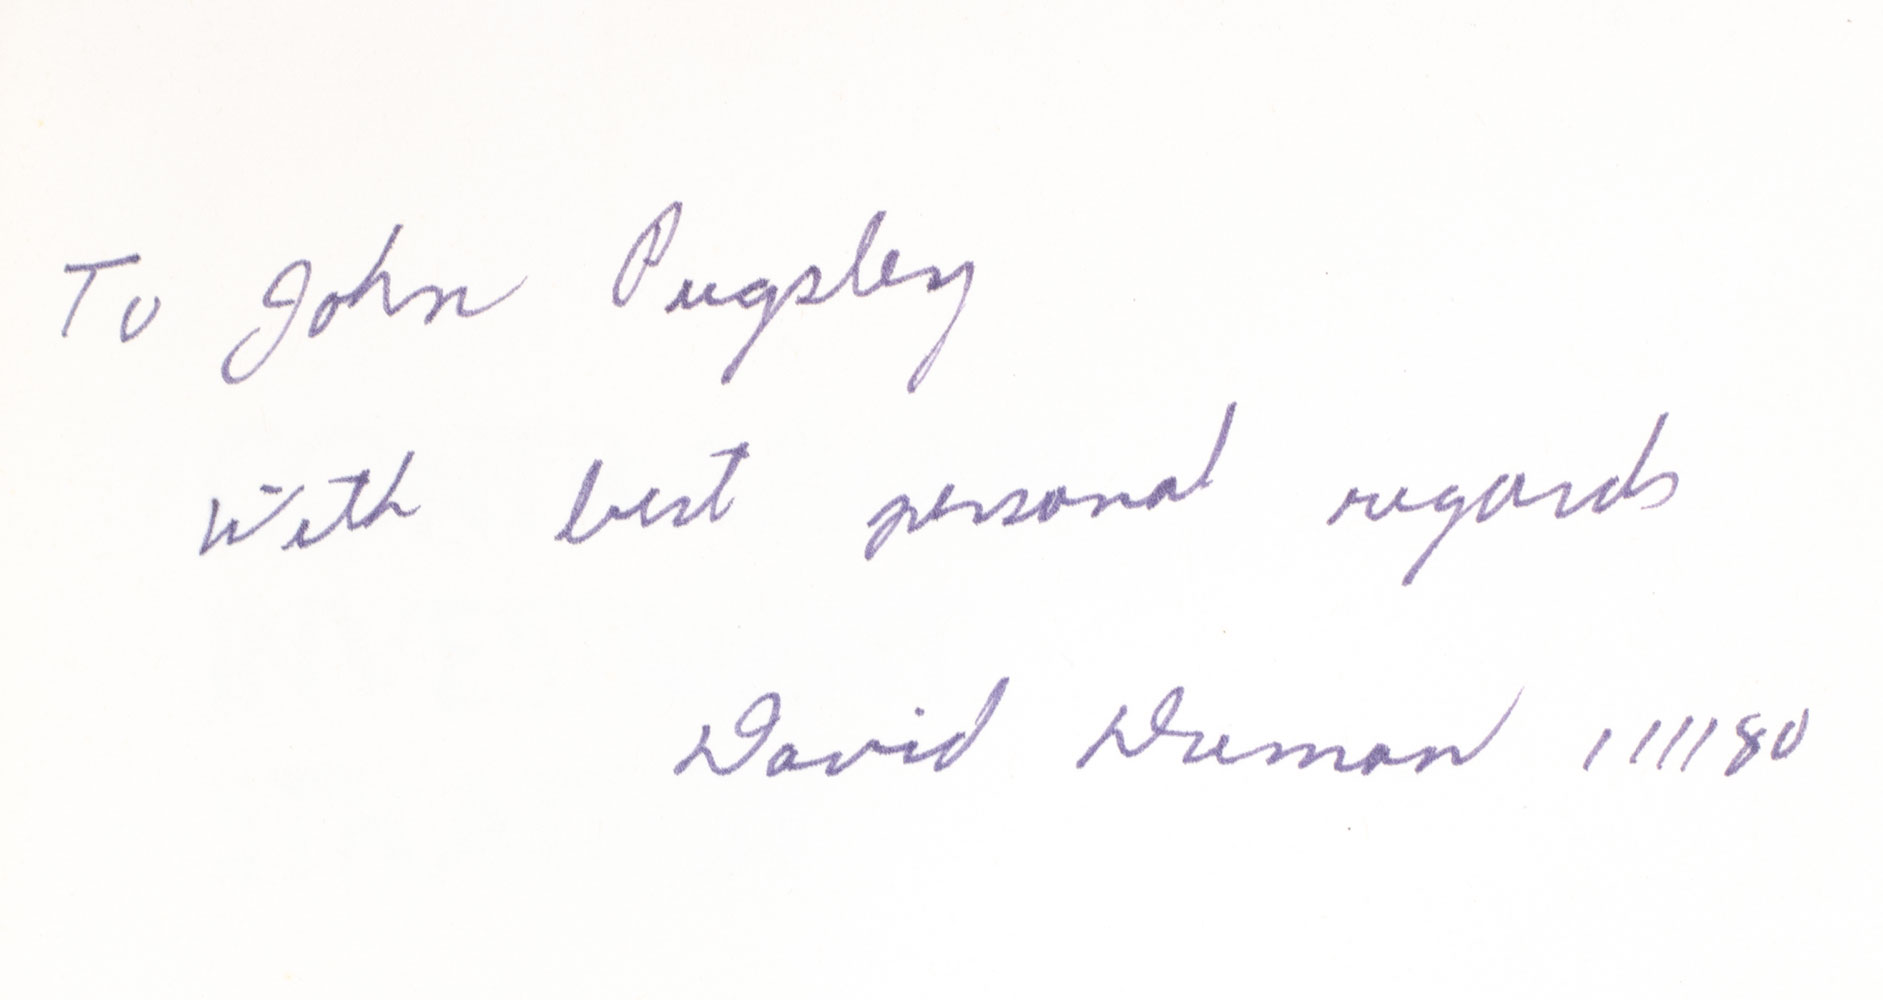 To John Pugsley
With best personal regards
David Dreman